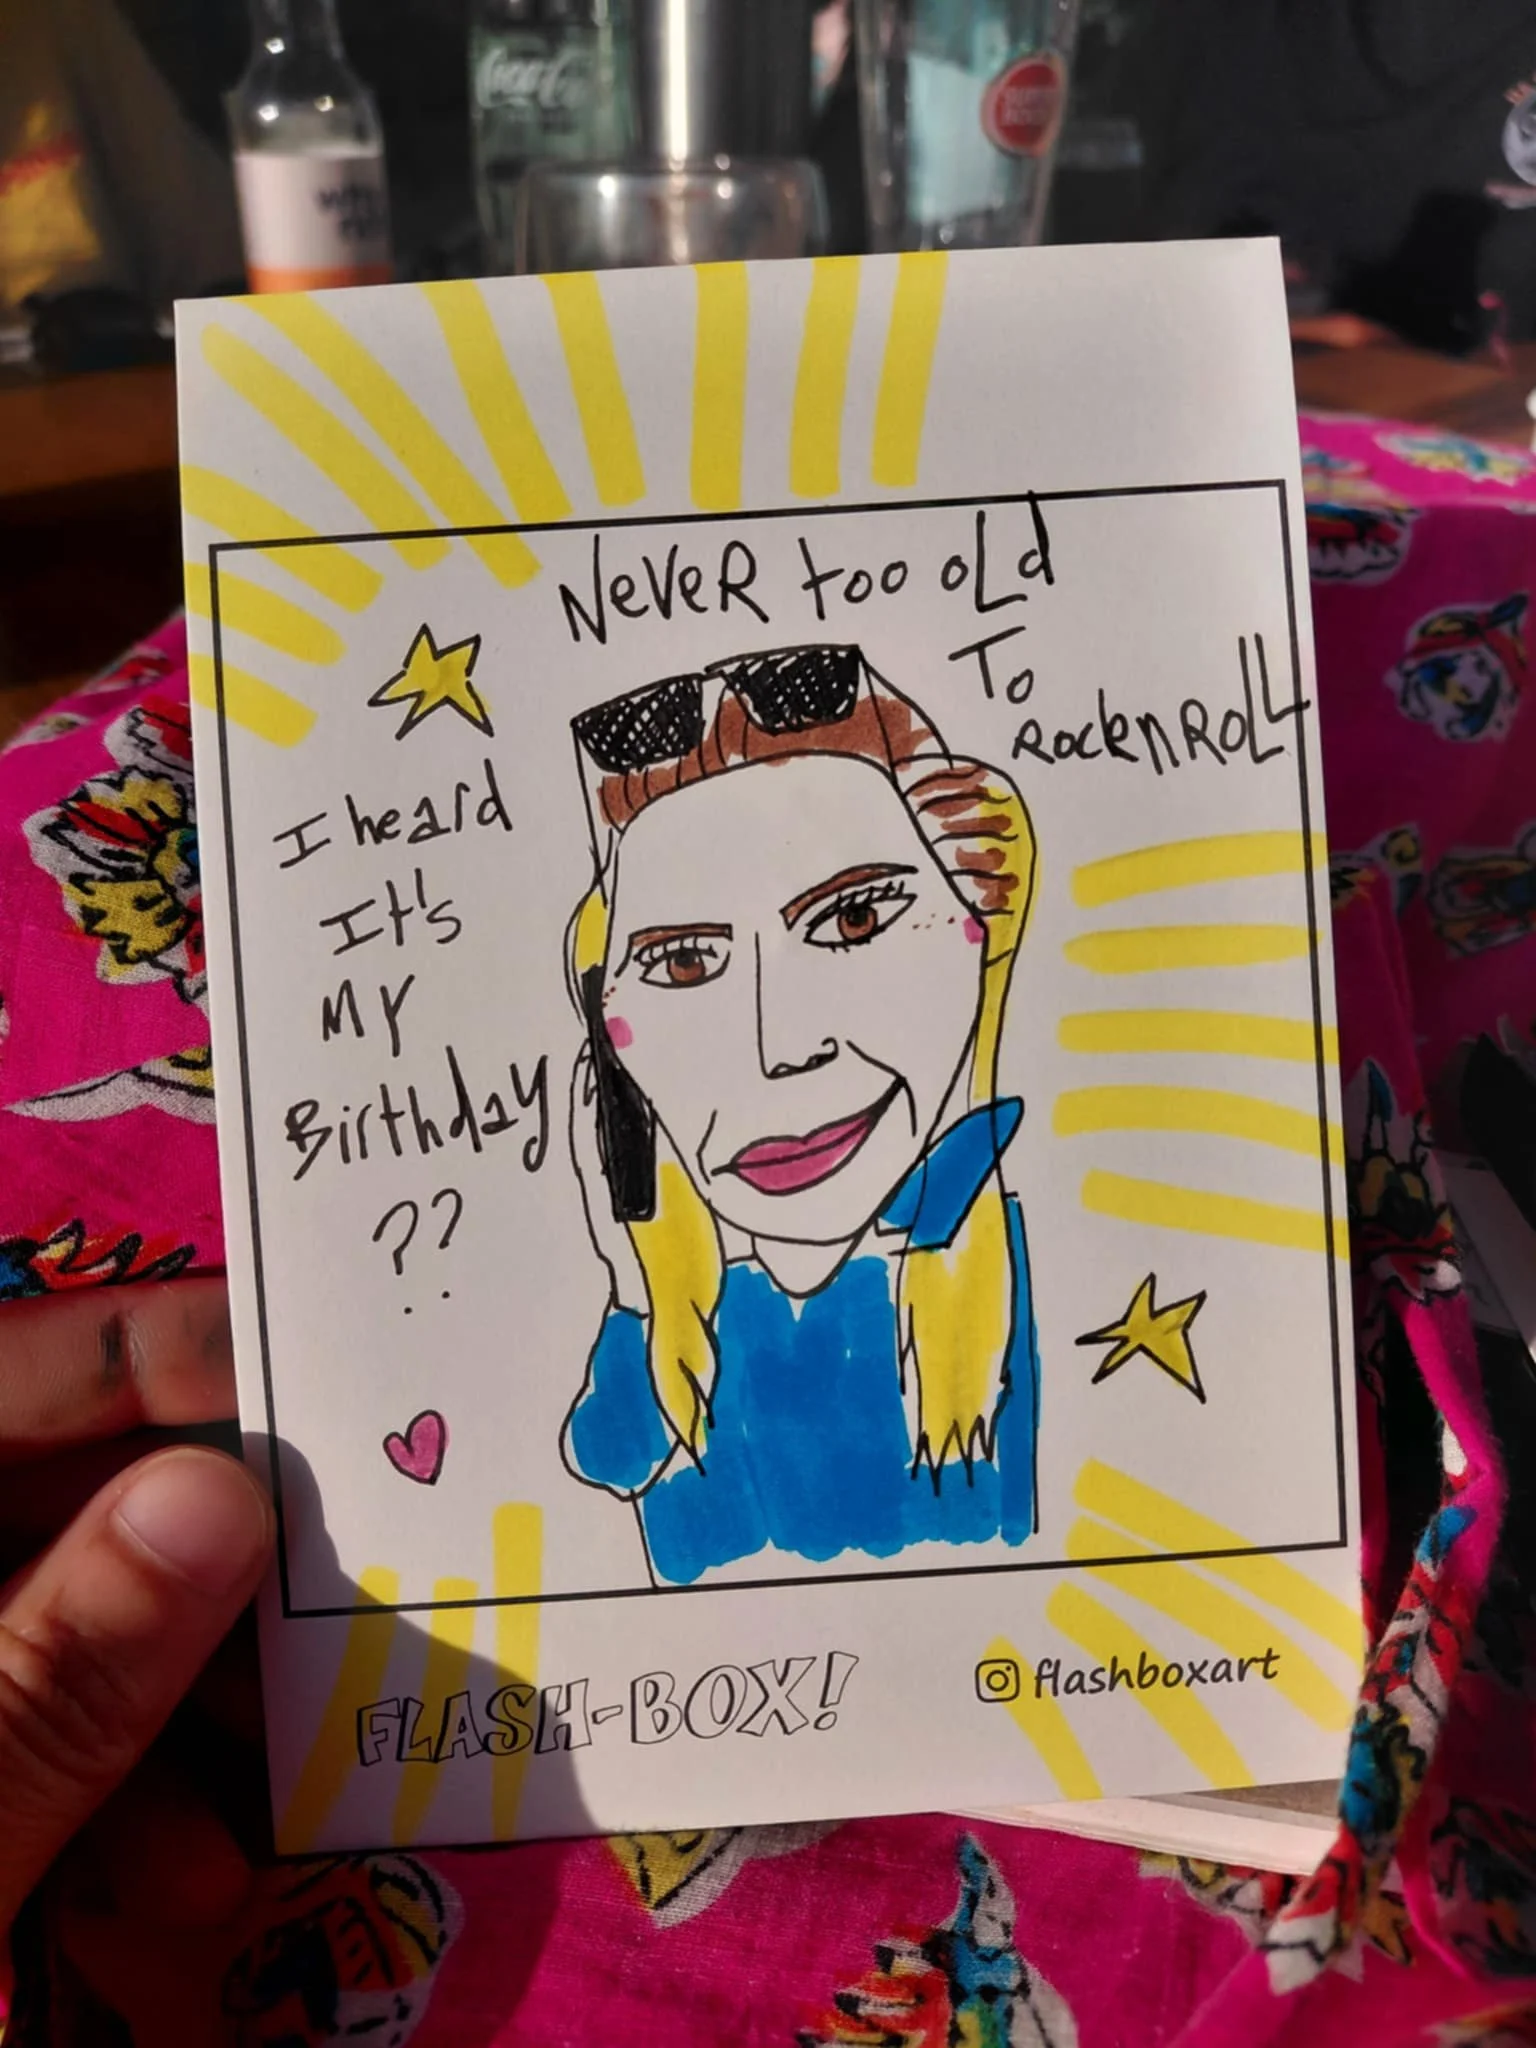 Coca-Cola
Never too old
To
Rock n Roll
I heard
It's
My
Birthday
??
FLASH-BOX!
flashboxart